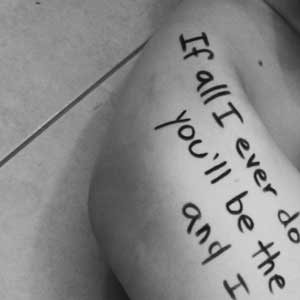 If all I ever do
you'll be the
and I